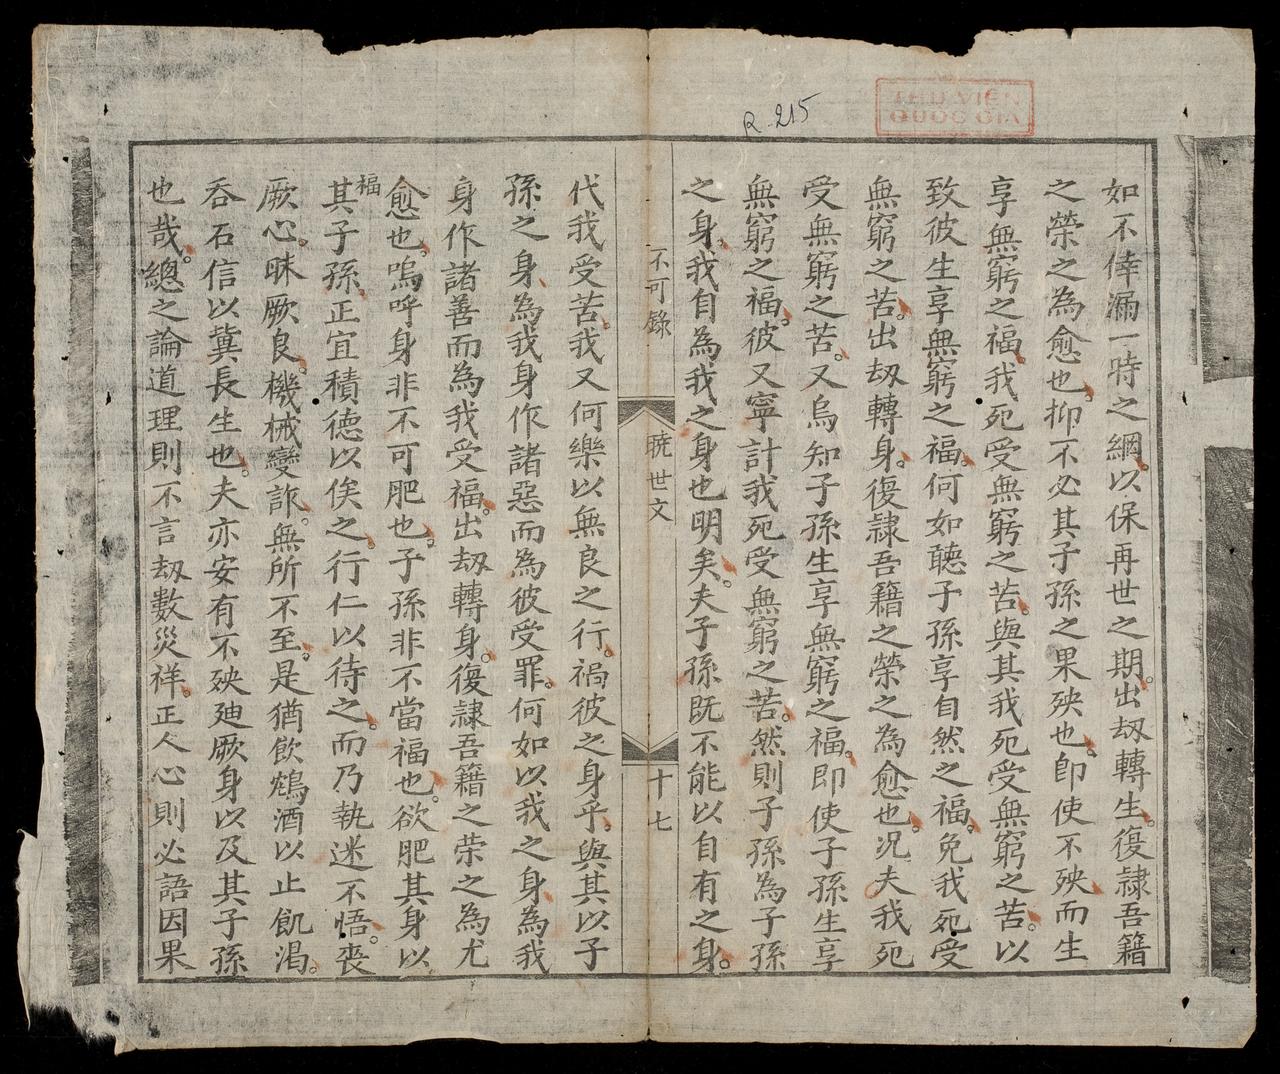 R.215
THƯ VIỆN
QUỐC GIA
如不倖漏一時之綱。以保再世之期。出刼轉生。復隷吾籍
之榮之為愈也。抑不必其子孫之果殃也。卽使不殃而生
享無窮之福。我死受無窮之苦。與其我死受無窮之苦。以
致彼生享無窮之福。何如聽子孫享自然之福。免我死受
無窮之苦。出刼轉身。復隷吾籍之榮之為愈也。况夫我死
受無窮之苦。又烏知子孫生享無窮之福。即使子孫生享
無窮之福。彼又寧計我死受無窮之苦。然則子孫為子孫
之身。我自為我之身也明矣。夫子孫既不能以自有之身。
不可錄
曉世文
十七
代我受苦。我又何樂以無良之行。禍彼之身乎。與其以子
孫之身。為我身作諸惡而為彼受罪。何如以我之身。為我
身作諸善而為我受福。出刼轉身。復隷吾籍之荣之為尤
愈也。嗚呼身非不可肥也。子孫非不當福也。欲肥其身以
福其子孫。正宜積德以俟之。行仁以待之。而乃執迷不悟。喪
厥心。昧厥良。機械變詐。無所不至。是猶飲鴆酒以止飢渴。
吞石信以冀長生也。夫亦安有不殃廸厥身以及其子孫
也哉。總之論道理則不言刼數災祥。正人心則必語因果